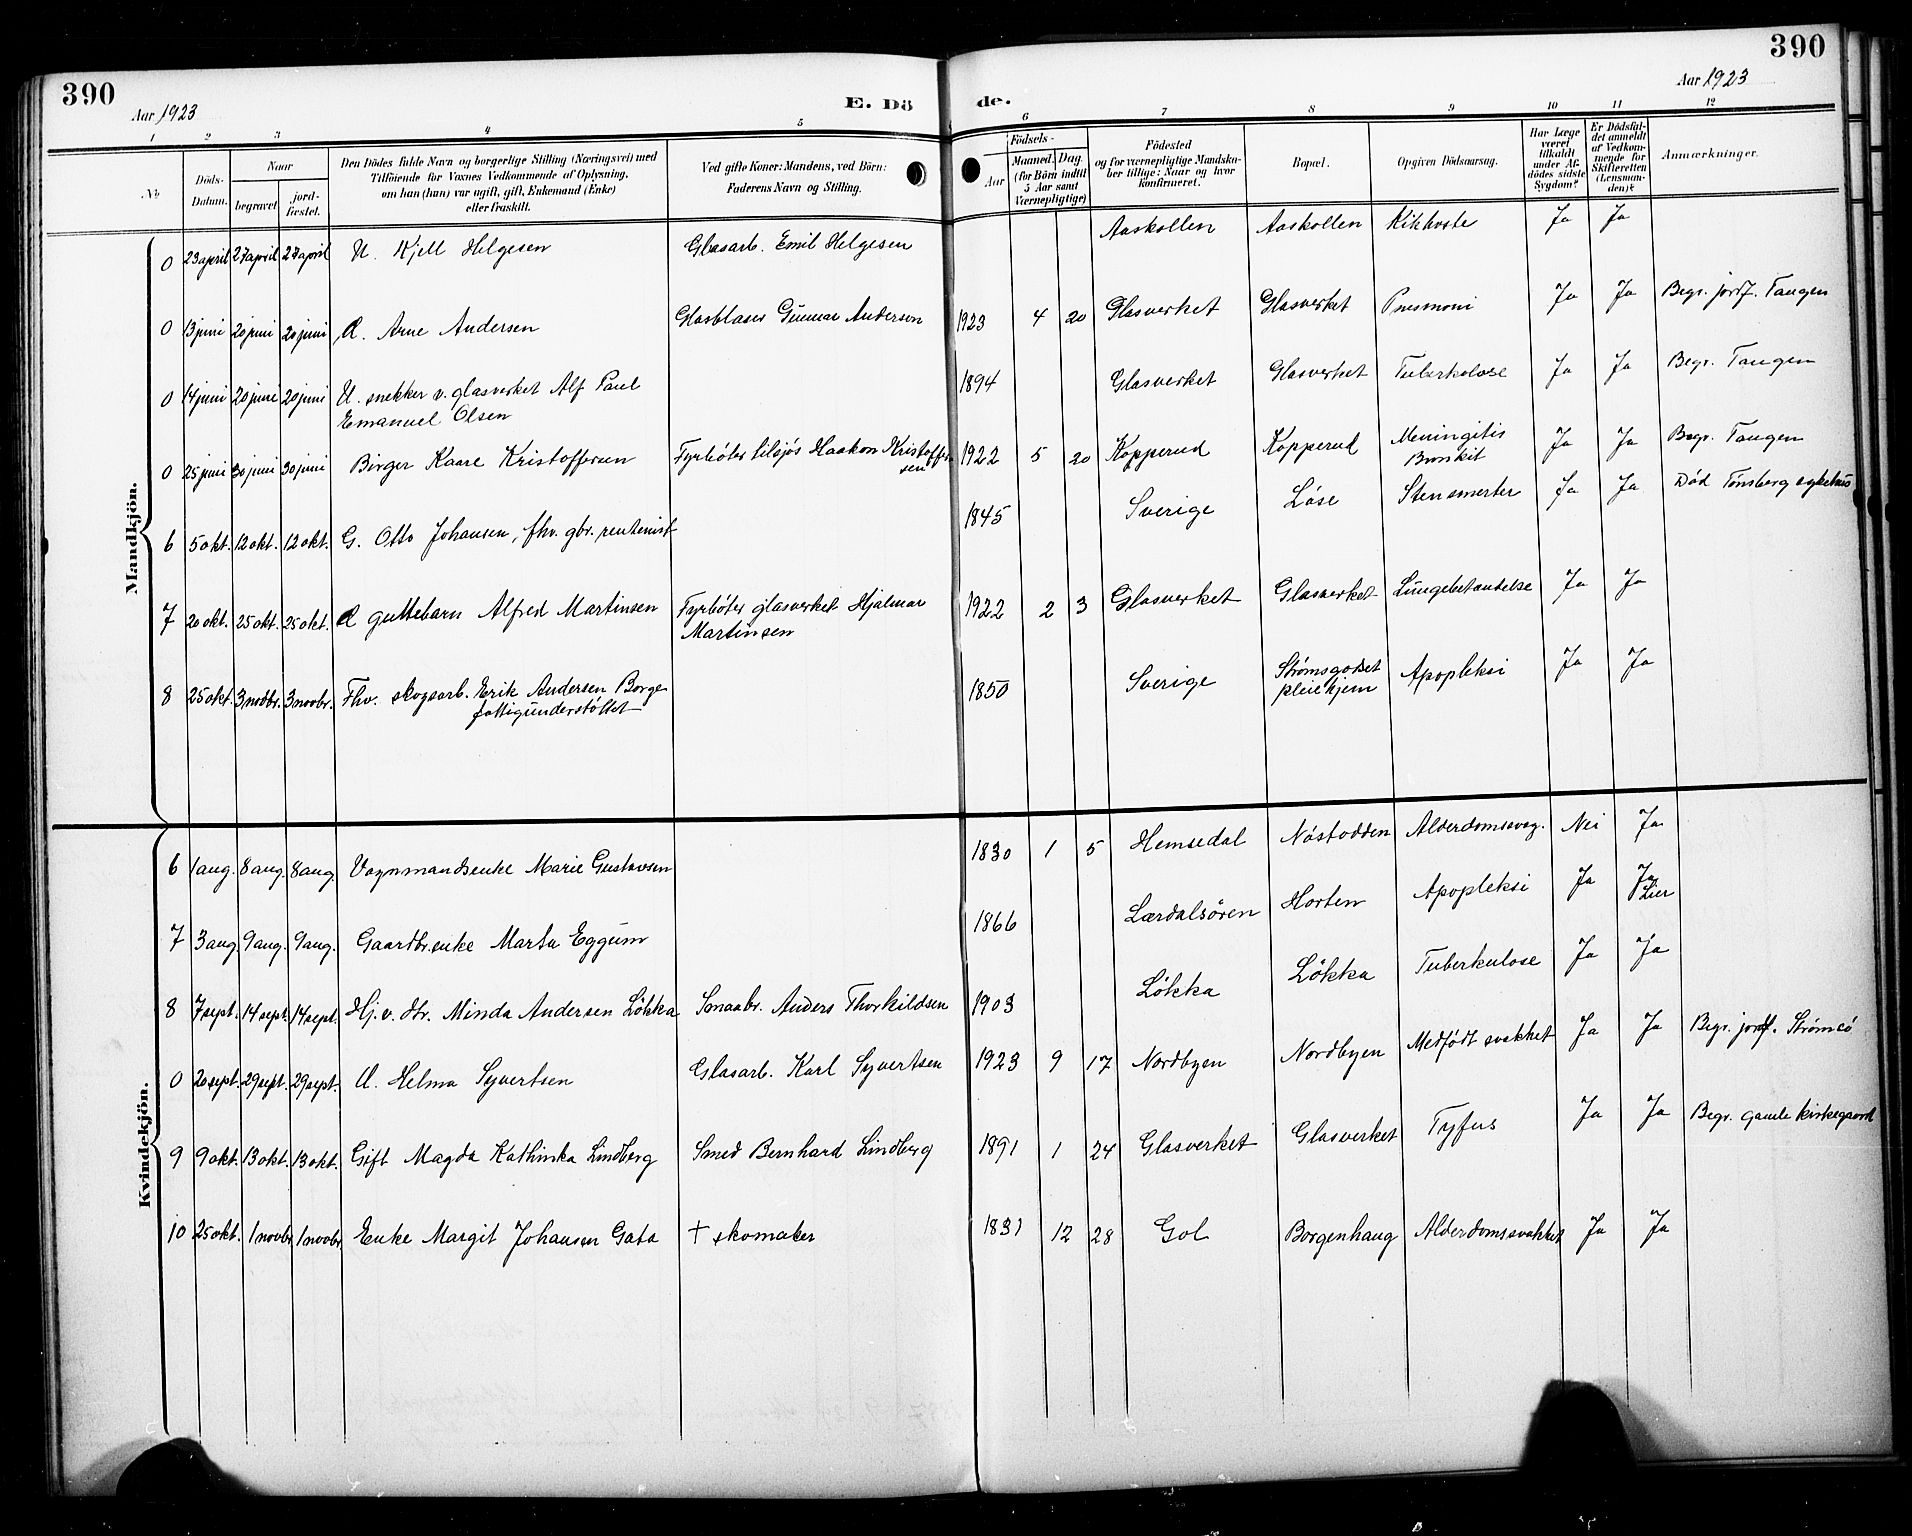 390
Aar 1923
E. Dö
de.
390
Aar 1923
1 2 3 4 5 6 7 8 9 10 11 12
№
Döds-Datum.
Naar
begravet
jord-fæstet.
Den Dödes fulde Navn og borgerlige Stilling (Næringsvei) med
Tilföiende for Voxnes Vedkommende af Oplysning,
om han (hun) var ugift, gift, Enkemand (Enke)
eller fraskilt.
Ved gifte Koner: Mandens, ved Börn:
Faderens Navn og Stilling.
Födsels-
Aar
Maaned. Dag.
(for Börn indtil
5 Aar samt
Værnepligtige)
Födested
og for værnepligtige Mandskaber tillige: Naar og hvor
konfirmeret.
Bopæl.
Opgiven Dödsaarsag.
Har Læge
været
tilkaldt
under Afdödes sidste
Sygdom?
Er Dödsfaldet anmeldt
af Vedkommende for
Skifteretten
(Lensmanden)?
Anmærkninger.
Mandkjön.
0 23 april 27 april 27 april U. Kjell Helgesen Glasarb. Emil Helgesen Aaskollen Aaskollen Kikhoste Ja Ja
0 13 juni 20 juni 20 juni U. Arne Andersen Glasblaser Gunnar Andersen 1923 4 20 Glasverket Glasverket Pnevmoni Ja Ja Begr. jordf. Tangen
0 14 juni 20 juni 20 juni U. snekker v. glasverket Alf Paul
Emanuel Olsen 1894 Glasverket Glasverket Tuberkulose Ja Ja Begr. Tangen
0 25 juni 30 juni 30 juni Birger Kaare Kristoffersen Fyrbøter tilsjøs Haakon Kristoffer
sen 1922 5 20 Kopperud Kopperud Meningitis
Bronkit Ja Ja Begr. Tangen
6 5 okt. 12 okt. 12 okt. G. Otto Johansen, fhv. gbr. rentenist 1845 Sverige Løse Stensmerter Ja Ja Død Tønsberg sykehus
7 20 okt. 25 okt. 25 okt. U guttebarn Alfred Martinsen Fyrbøter glasverket Hjalmar
Martinsen 1922 2 3 Glasverket Glasverket Lungebetændelse Ja Ja
8 25 okt. 3 novbr. 3 novbr. Fhv. skogsarb. Erik Andersen Borge
fattigunderstøttet 1850 Sverige Strømsgodset
pleiehjem Apopleksi Ja Ja
Kvindekjön.
6 1 aug. 8 aug. 8 aug. Vognmandsenke Marie Gustavsen 1830 1 5 Hemsedal Nøstodden Alderdomssvag. Nei Ja
7 3 aug. 9 aug. 9 aug. Gaardbr.enke Marta Eggum 1866 Lærdalsören Horten Apopleksi Ja Ja
Lier
8 7 sept. 14 sept. 14 sept. Hj.v. dtr. Minda Andersen Lökka Smaabr. Anders Thorkildsen 1903 Lökka Lökka Tuberkulose Ja Ja
0 20 sept. 29 sept. 29 sept. U. Helma Syvertsen Glasarb. Karl Syvertsen 1923 9 17 Nordbyen Nordbyen Medfødt svakhet Ja Ja Begr. jordf. Strømsø
9 9 okt. 13 okt. 13 okt. Gift Magda Kathinka Lindberg Smed Bernhard Lindberg 1891 1 24 Glasverket Glasverket Tyfus Ja Ja Begr. gamle kirkegaard
10 25 okt. 1 novbr 1 novbr Enke Margit Johansen Gata + skomaker 1831 12 28 Gol Borgenhaug Alderdomssvakhet Ja Ja